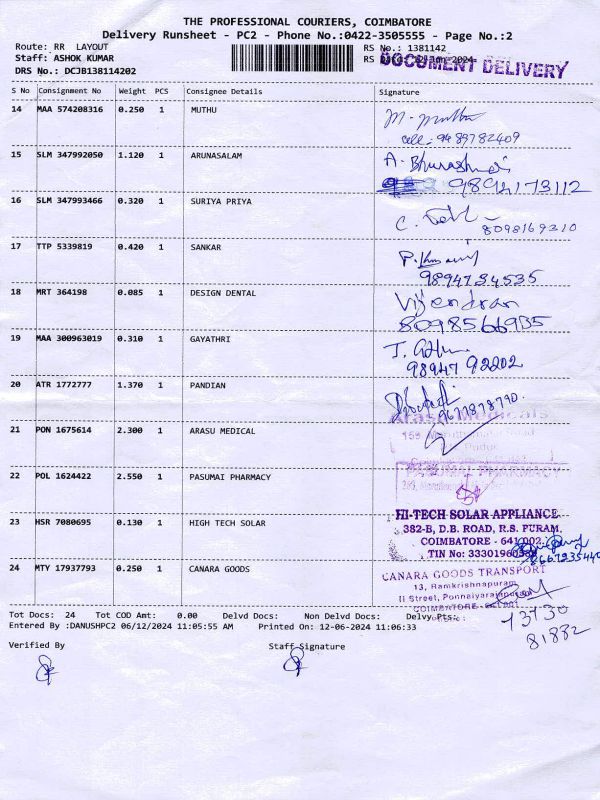 THE PROFESSIONAL COURIERS, COIMBATORE
Delivery Runsheet - PC2 - Phone No.:0422-3505555 - Page No.:2
Route: RR LAYOUT
RS No.: 1381142
Staff: ASHOK KUMAR
RS
DOCUMENT DELIVERY
DRS No.: DCJB138114202
S No Consignment No Weight PCS Consignee Details Signature
14 MAA 574208316 0.250 1 MUTHU
M. Muthu
cell:
15 SLM 347992050 1.120 1 ARUNASALAM
A.
9892173112
16 SLM 347993466 0.320 1 SURIYA PRIYA
C.
8098169210
17 TTP 5339819 0.420 1 SANKAR
P.
9894734535
18 MRT 364198 0.085 1 DESIGN DENTAL
Vijendran
8098566935
19 MAA 300963019 0.310 1 GAYATHRI
T.
98947 92202
20 ATR 1772777 1.370 1 PANDIAN
9677878790.
21 PON 1675614 2.300 1 ARASU MEDICAL
Arasu Medicals
22 POL 1624422 2.550 1 PASUMAI PHARMACY
PASUMAI PHARMACY
23 HSR 7080695 0.130 1 HIGH TECH SOLAR
HI-TECH SOLAR APPLIANCE
382-B, D.B. ROAD, R.S. PURAM,
COIMBATORE - 641 002.
TIN No:
24 MTY 17937793 0.250 1 CANARA GOODS
CANARA GOODS TRANSPORT
13, Ramkrishnapuram,
II Street, Ponnaiyarajapuram
COIMBATORE - 641 001
73730
81882
Tot Docs: 24 Tot COD Amt: 0.00 Delvd Docs: Non Delvd Docs: Delvy Pts:
Entered By :DANUSHPC2 06/12/2024 11:05:55 AM Printed On: 12-06-2024 11:06:33
Verified By Staff Signature